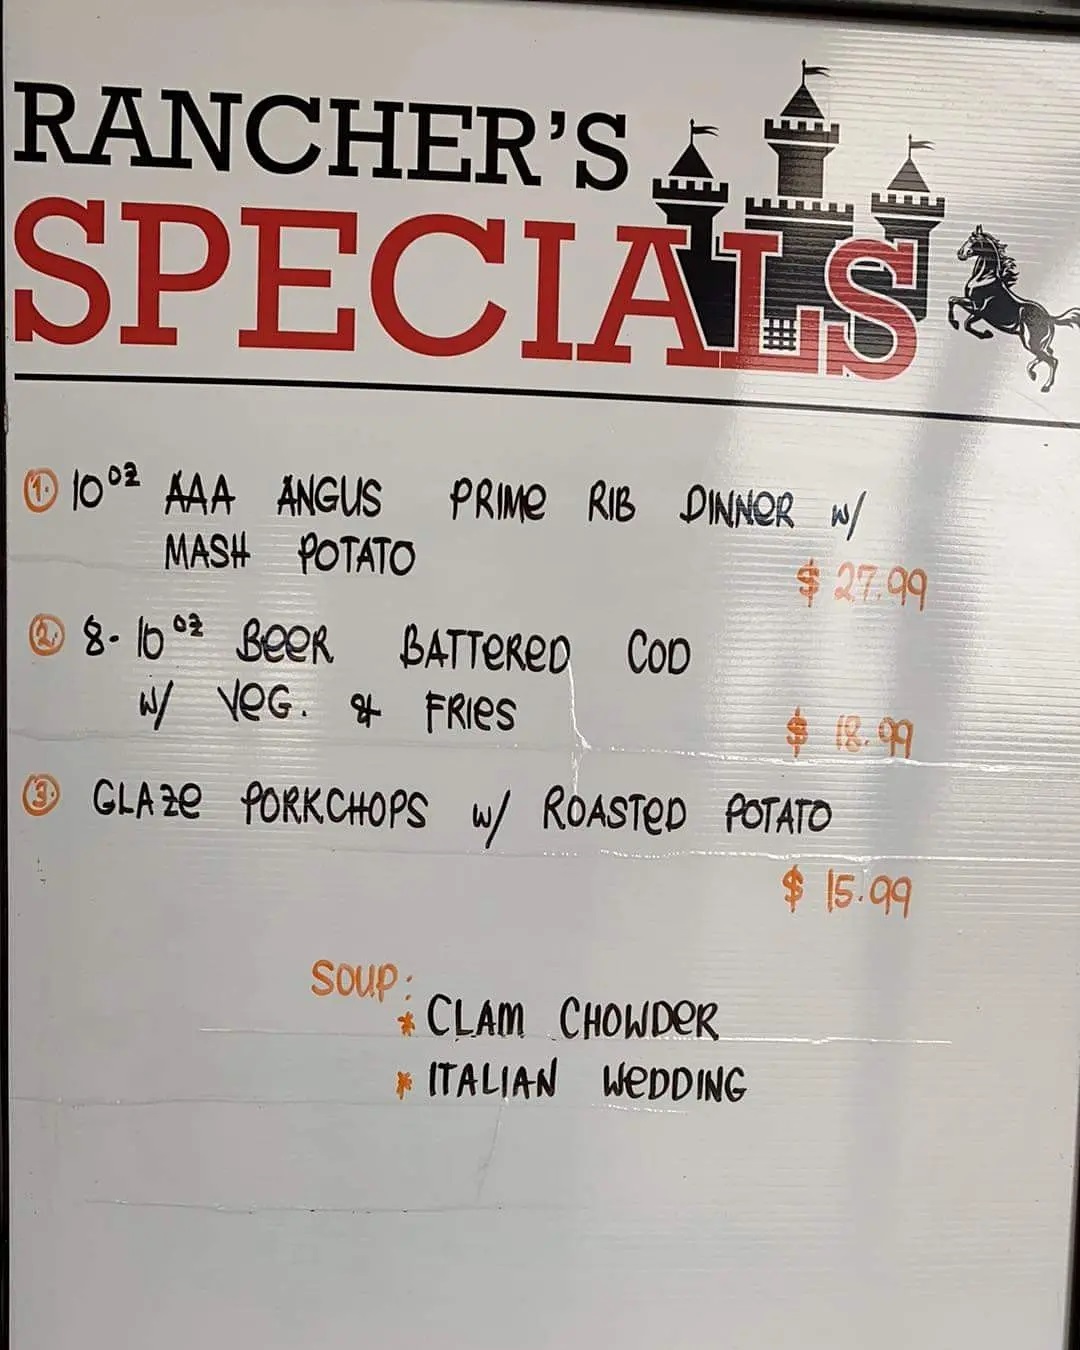 RANCHER'S
SPECIALS
1. 10 oz AAA ANGUS PRIME RIB DINNER w/
MASH POTATO
$ 27.99
2. 8-10 oz BEER BATTERED COD
w/ VEG. & FRIES
$ 18.99
3. GLAZE PORKCHOPS w/ ROASTED POTATO
$ 15.99
SOUP:
* CLAM CHOWDER
* ITALIAN WEDDING